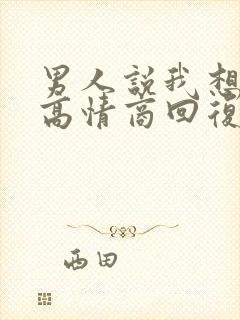 男人説我想
高情商回復
西田